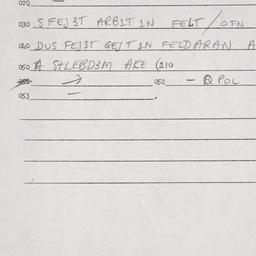 020
030 S FEJ3T ARB1T 1N FELT / OFN
040 DUS FEJ3T GEJT 1N FELDARAN A
050 A STLEBD3M AKE (210
052 - B POL
053 -